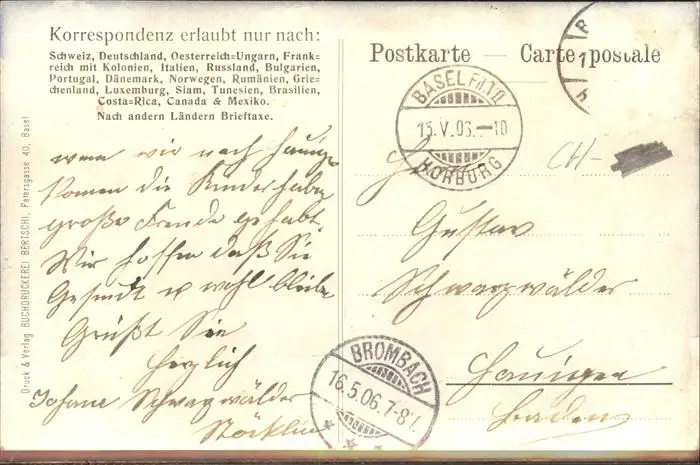 Korrespondenz erlaubt nur nach:
Schweiz, Deutschland, Oesterreich=Ungarn, Frank=
reich mit Kolonien, Italien, Russland, Bulgarien,
Portugal, Dänemark, Norwegen, Rumänien, Grie=
chenland, Luxemburg, Siam, Tunesien, Brasilien,
Costa=Rica, Canada & Mexiko.
Nach andern Ländern Brieftaxe.
wenn wir nach Hauingen
komen die Kinder haben
große Freude gehabt.
Wir hoffen daß Sie
Gesund u wohl
Grüßt Sie
herzlich
Schwarzwälder
Stöcklin
Druck & Verlag BUCHDRUCKEREI BERTSCHI, Petersgasse 40, Basel
Postkarte — Carte postale
BASEL FIL.
15.V.06.–10
HORBURG
CH-
Gustav
Schwarzwälder
Hauingen
Baden
BROMBACH
16.5.06.7-8V.